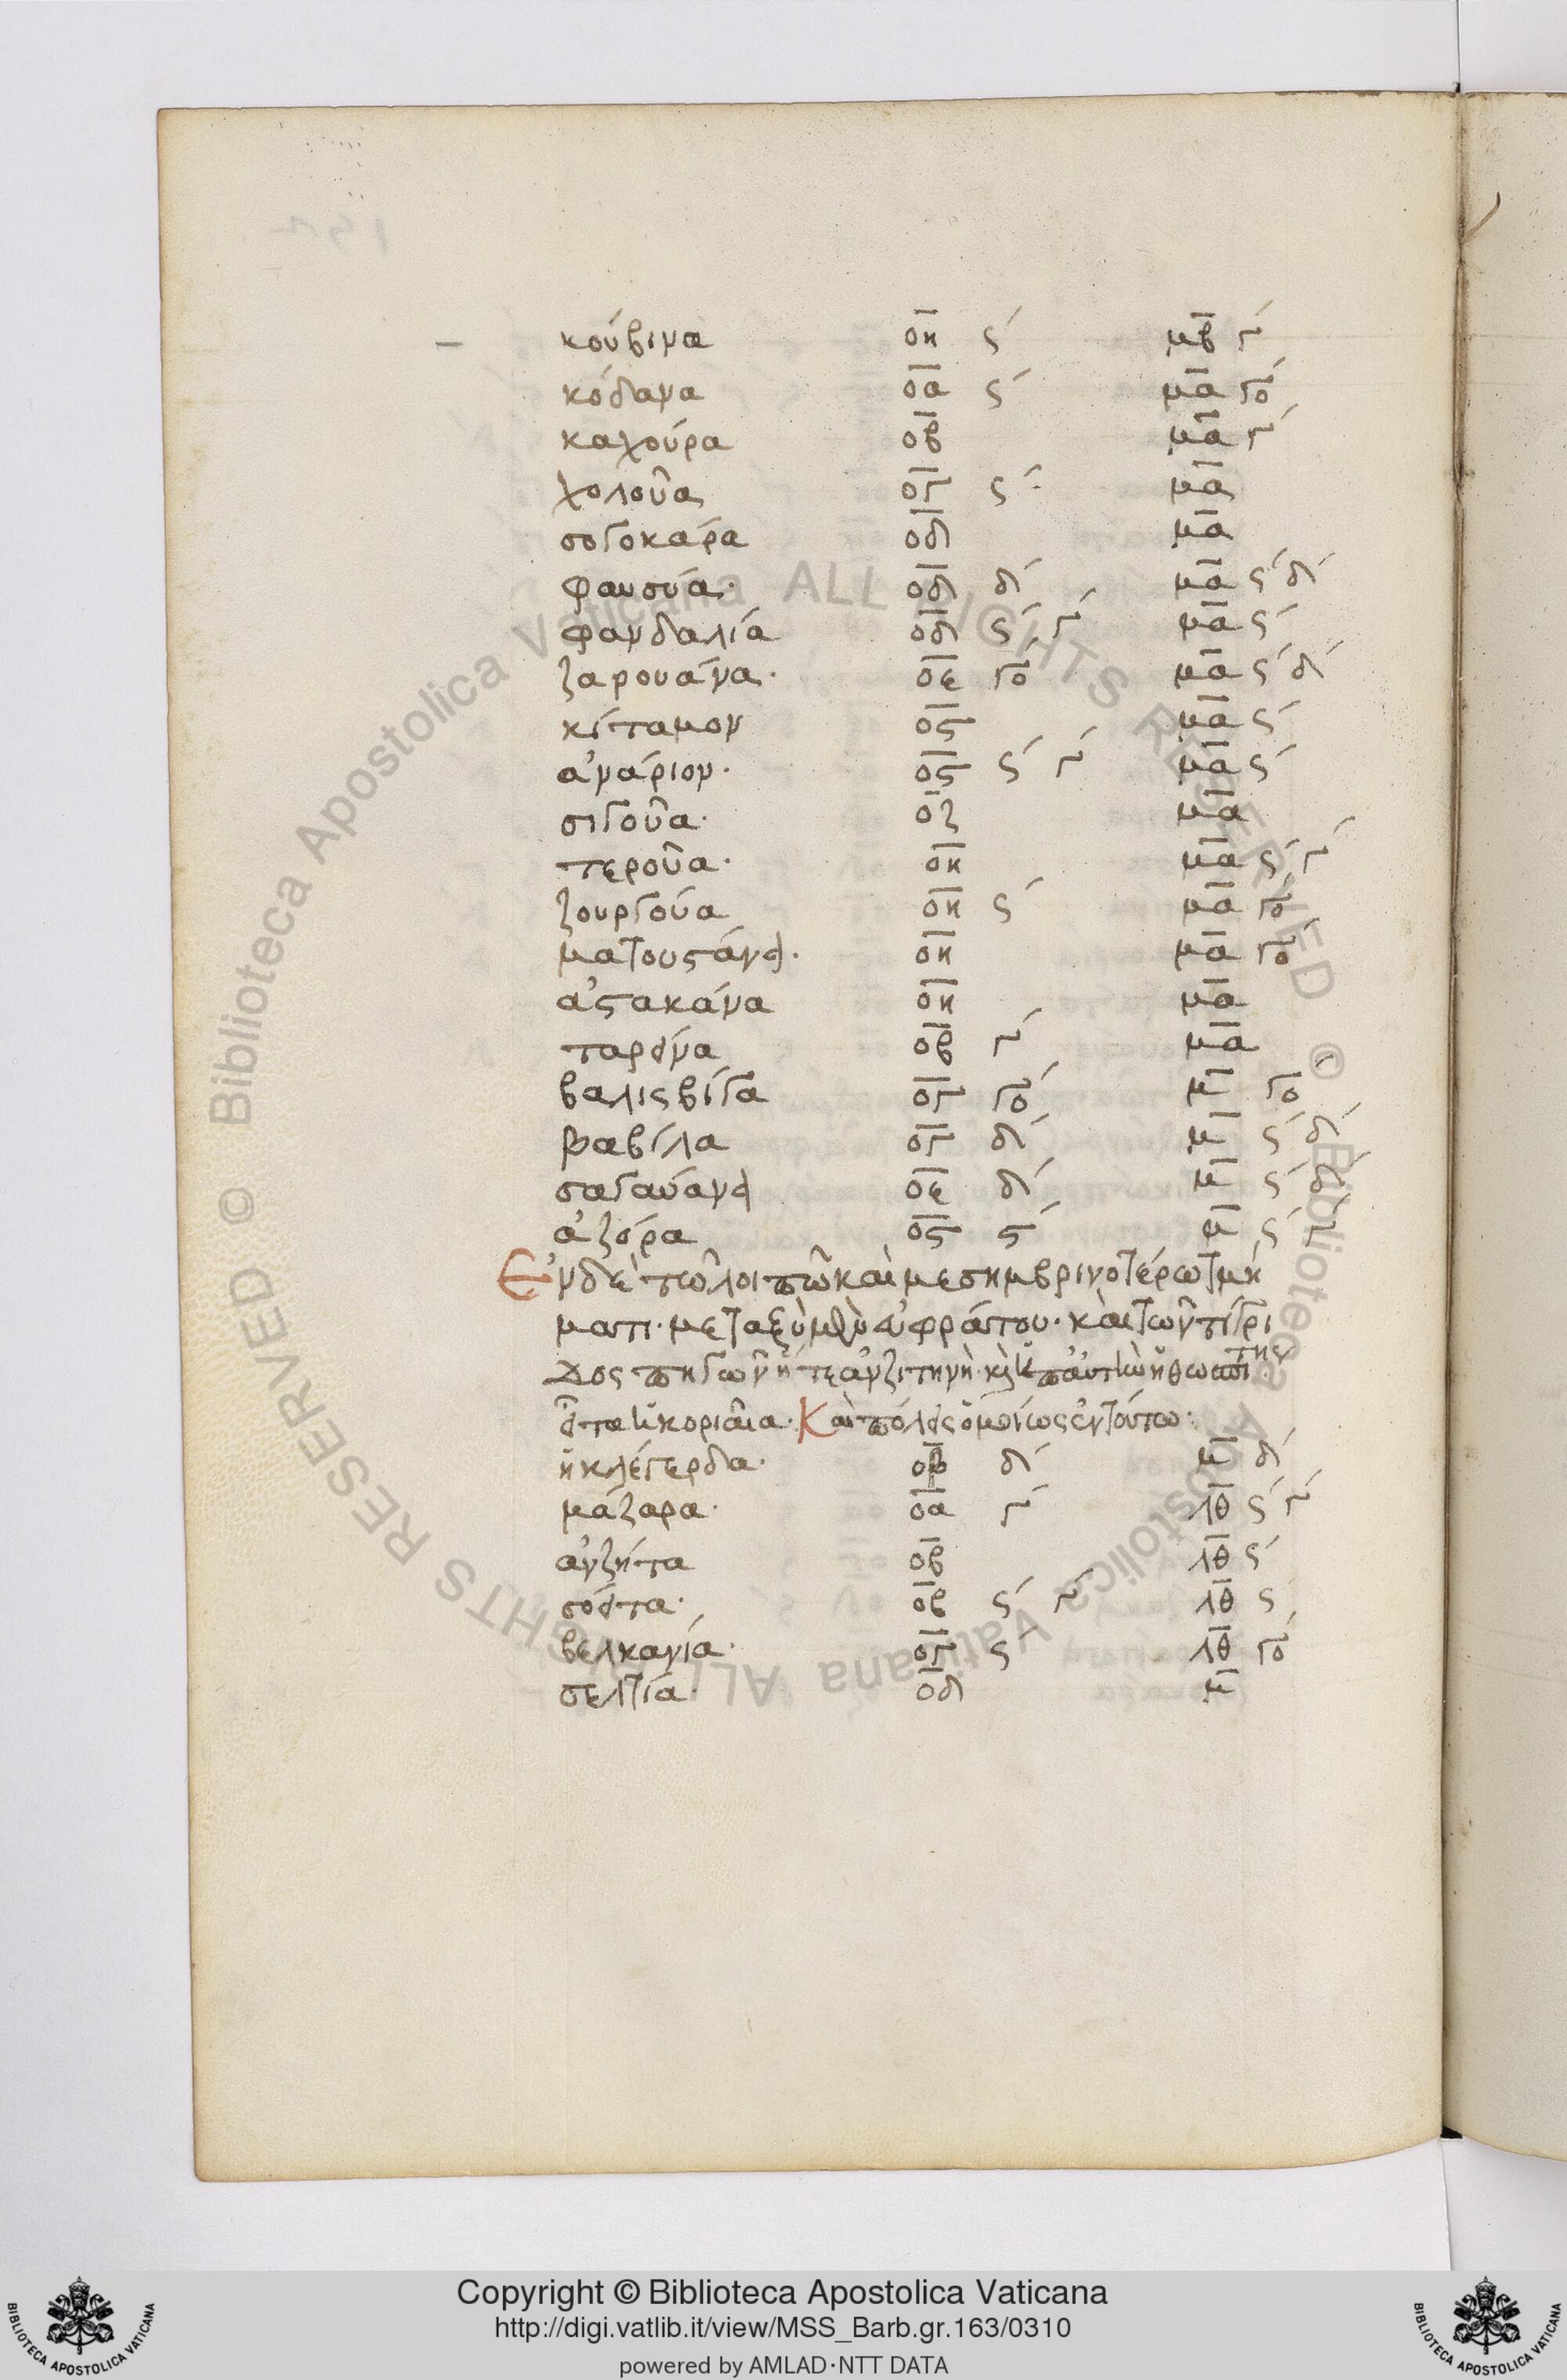 κούβινα οη ς´ μβ γ´
κόδανα οα ς´ μα γο´
καχούρα οβ μα γ´
χολοῦα ογ ς´ μα
σογοκάρα οδ μα
φαυσύα· οδ δ´ μα ς´ δ´
φανδαλία οδ ς´ γ´ μα ς´
ζαρουάνα· οε γο´ μα ς´ δ´
κίταμον ος μα ς´
ἀνάριον· ος ς´ γ´ μα ς´
σιγοῦα· οζ μα
τεροῦα· οη μα ς´ γ´
ζουργούα οη ς´ μα γο´
ματουστάνα· οη μα γο´
ἀστακάνα οη μα
ταρόνα οβ γ´ μα
βαλισβίγα ογ γο´ μ γο´
βαβίλα ογ δ´ μ ς´ δ´
σαγαυάνα οε δ´ μ ς´ δ´
ἀζόρα ος ς´ μ ς´ γ´
Ἐν δὲ τῷ λοιπῷ καὶ μεσημβρινοτέρῳ τμή
ματι· μεταξὺ μὲν εὐφράτου· καὶ τῶν τίγρι
δος πηγῶν ἥ τε ἀνζιτηνὴ
κοριαῖα· Καὶ πόλεις ὁμοίως ἐν τούτῳ·
ἠκλέγερδα· οβ δ´ μ δ´
μάζαρα· οα γ´ λθ ς´ γ´
ἀνζήτα οβ λθ ς´
σόειτα· οβ ς´ γ´ λθ ς´
βελκανία· ογ ς´ λθ γο´
σελτία· οδ μ
© Biblioteca Apostolica Vaticana ALL RIGHTS RESERVED © Biblioteca Apostolica Vaticana ALL RIGHTS RESERVED
Copyright © Biblioteca Apostolica Vaticana
http://digi.vatlib.it/view/MSS_Barb.gr.163/0310
powered by AMLAD·NTT DATA
BIBLIOTECA APOSTOLICA VATICANA
BIBLIOTECA APOSTOLICA VATICANA